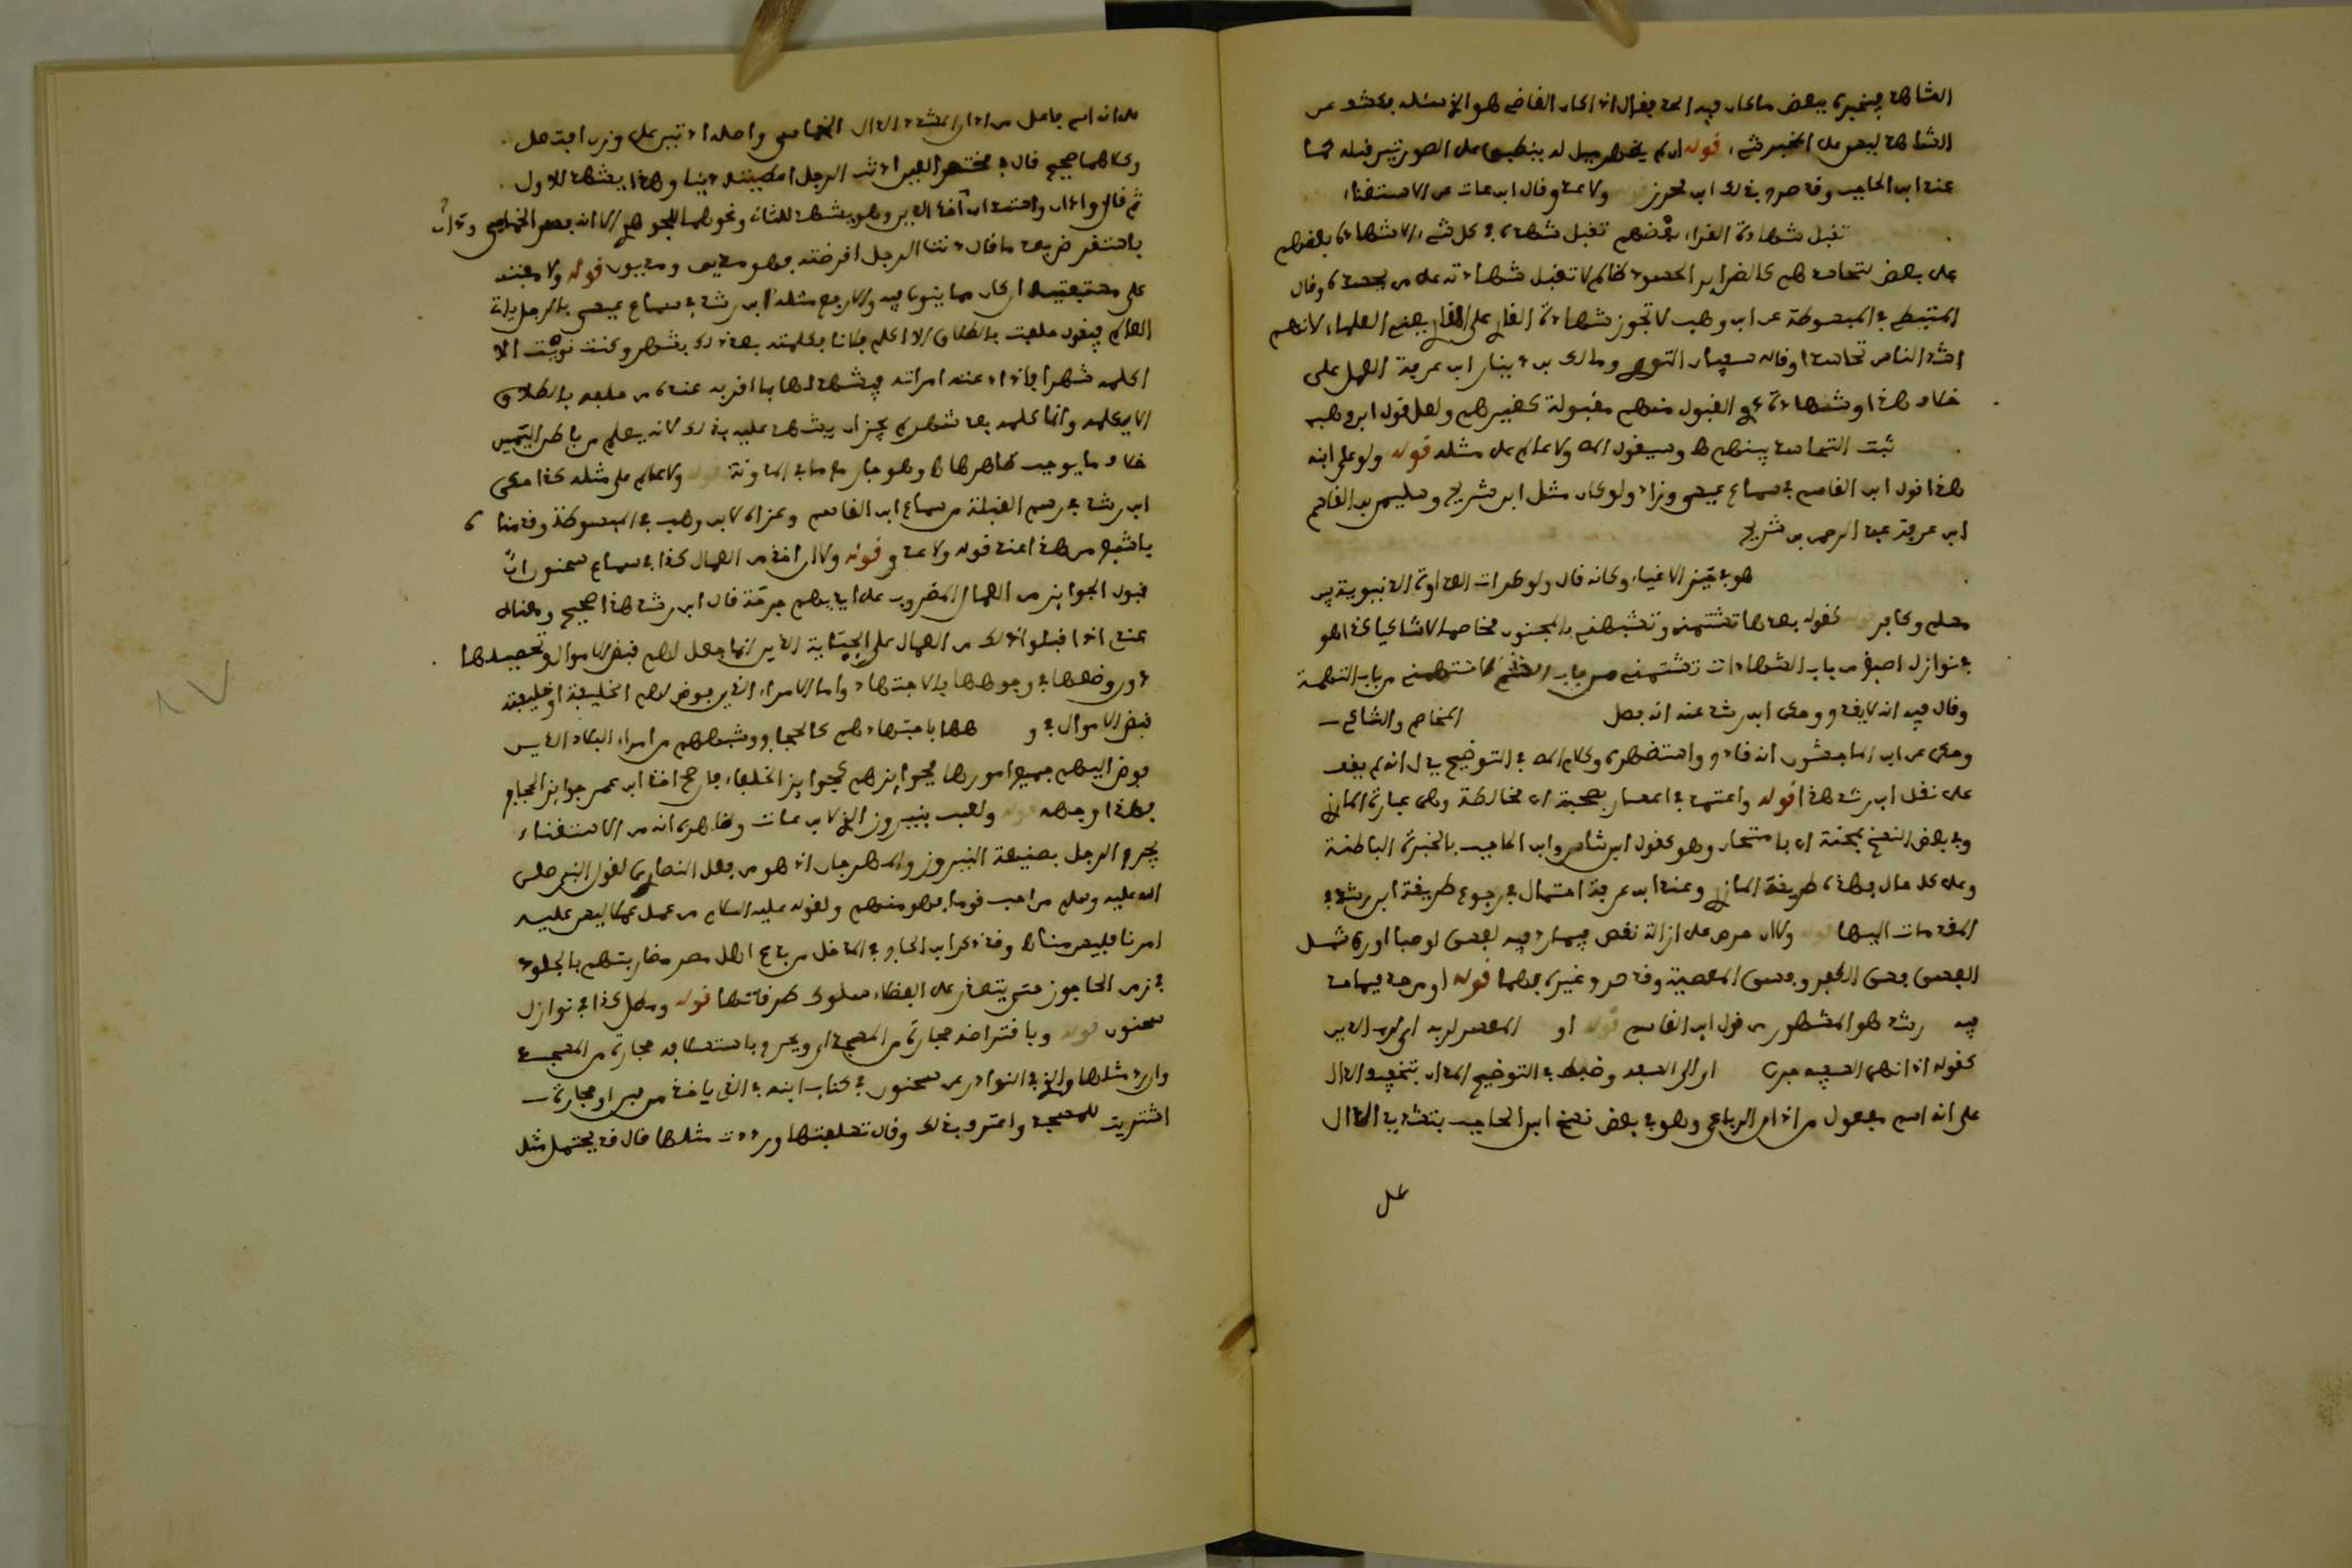 الشاهد فيخبره ببعض ما كان فيه الحد فقال اذا كان القاضي هو الذي سئله فكشف عن
الشاهد ليس على المخبر شيء قوله
عند ابن الحاجب وقد صرح بذلك ابن محرز ولابد وقال ابن عات عن الاستغناء
تقبل شهادة القراء بعضهم تقبل شهادتهم في كل شيء الا شهادة بعضهم
على بعض لتحاسدهم كالضراير والحسود ظالم لا تقبل شهادته على من يحسده وقال
المتيطي في المبسوطة عن ابن وهب لا تجوز شهادة القارئ على القارئ يعني العلماء لانهم
اشد الناس تحاسدا وقاله سفيان الثوري ومالك بن دينار ابن عرفة العمل على
خلاف هذا وشهادة ذوي القبول منهم مقبولة كغيرهم ولعل قول ابن وهب
ثبت التحاسد بينهم وسيقول ولا عالم على مثله قوله ولو على ابنه
هذا قول ابن القاسم في سماع عيسى وزاد ولو كان مثل ابن شريح وسليمان بن القاسم
ابن عرفة عبد الرحمن بن شريح
هو بعض الاغنياء وكانه قال ولو طرات العداوة الدنيوية بين
مسلم وكافر قوله كقوله بعدها تتهمني وتشبهني بالمجنون مخاصما لا شاكيا كذا هو
في نوازل اصبغ من باب الشهادات تشتمني من باب الشتم لا تتهمني من باب التهمة
وقال فيه انه لا يقدح وحكى ابن رشد عنه انه فصل المخاصم والشاكي
وحكى عن ابن الماجشون انه قادح واستظهره وكلام في التوضيح يدل انه لم يقف
على نقل ابن رشد هذا قوله واعتمد في اعسار بصحبة اي مخالطة وهي عبارة المازري
وفي بعض النسخ بمحنة اي بامتحان وهو كقول ابن شاس وابن الحاجب بالخبرة الباطنة
وعلى كل حال فهذه طريقة المازري وعند ابن عرفة احتمال في رجوع طريقة ابن رشد في
المقدمات اليها قوله ولا ان حرص على ازالة نقص فيما رد فيه لفسق او صبا او رق شمل
الفسق فسق الكفر وفسق المعصية وقد صرح وغيره بهما قوله او مرجه فيما حد
فيه رشد هو المشهور من قول ابن القاسم قوله او المعسر لربه اي لرب الدين
كقوله اذا اتهم السفيه جرى اي الى السفيه وضبط في التوضيح المدان بتخفيف الدال
على انه اسم مفعول من اذان الرباعي وهو في بعض نسخ ابن الحاجب بتشديد الدال
على
على انه اسم فاعل من ادان المشدد الدال الخماسي واصله ادتين على وزن افتعل
وكلاهما صحيح قال في مختصر العين ادنت الرجل اعطيته دينا وهذا يشهد للاول
ثم قال وادان واستدان اخذ الدين وهو يشهد للثاني ونحوهما للجوهري الا انه فسر الخماسي
باستقرض بعد ما قال دنت الرجل اقرضته فهو مدين ومديون قوله ولا مفت
على مستفتيه ان كان مما ينوى فيه والا رفع مثله ابن رشد في سماع عيسى في الرجل ياتي
العالم فيقول حلفت بالطلاق الا اكلم فلانا فكلمته بعد ذلك بشهر وكنت نويت الا
اكلمه شهرا فاذا دعته امراته فيشهد لها بما اقر به عنده من حلفه بالطلاق
الا يكلمه وانما كلمه بعد شهر لم يجز ان يشهد عليه بذلك لانه يعلم من باطن اليمين
خلاف ما يوجب ظاهرها وهو جار مع ما في المدونة قوله ولا عالم على مثله كذا حكى
ابن رشد في رسم القبلة من سماع ابن القاسم وعزاه لابن وهب في المبسوطة وقدمنا
باشبع من هذا عند قوله ولابد قوله ولا ان اخذ من العمال كذا في سماع سحنون ان
قبول الجوايز من العمال المضروب على ايديهم جرحة قال ابن رشد هذا صحيح ومعناه
عندي اذا قبلوا ذلك من العمال على الجباية الذين انما جعل لهم قبض الاموال وتحصيلها
دون وضعها في وجوهها بالاجتهاد واما الامراء الذين فوض لهم الخليفة او خليفته
قبض الاموال وصرفها باجتهادهم كالحجاج وشبههم من امراء البلاد الذين
فوض اليهم جميع امورها فجوايزهم كجوايز الخلفاء فان صح اخذ ابن عمر جوايز الحجاج
فهذا وجهه قوله ولعب بنيروز الذي لابن عات وظاهره انه من الاستغناء
يجرح الرجل بصنيعة النيروز والمهرجان اذ هو من فعل النصارى لقول النبي صلى
الله عليه وسلم من احب قوما فهو منهم ولقوله عليه السلام من عمل عملا ليس عليه
امرنا فليس منا وقد ذكر ابن الحاج في المدخل من بدع اهل مصر مضاربتهم بالجلود
في زمن الحاجوز حتى يتعذر على الفضلاء سلوك طرقاتها قوله ومطل كذا في نوازل
سحنون قوله وباقتراضه حجارة من المسجد اي ويجرح باستسلافه حجارة من المسجد
وان رد مثلها والذي في النوادر عن سحنون في كتاب ابنه في الذي ياخذ من جير او حجارة
اشتريت للمسجد واعترف بذلك وقال تسلفتها ورددت مثلها قال قد يحتمل مثل